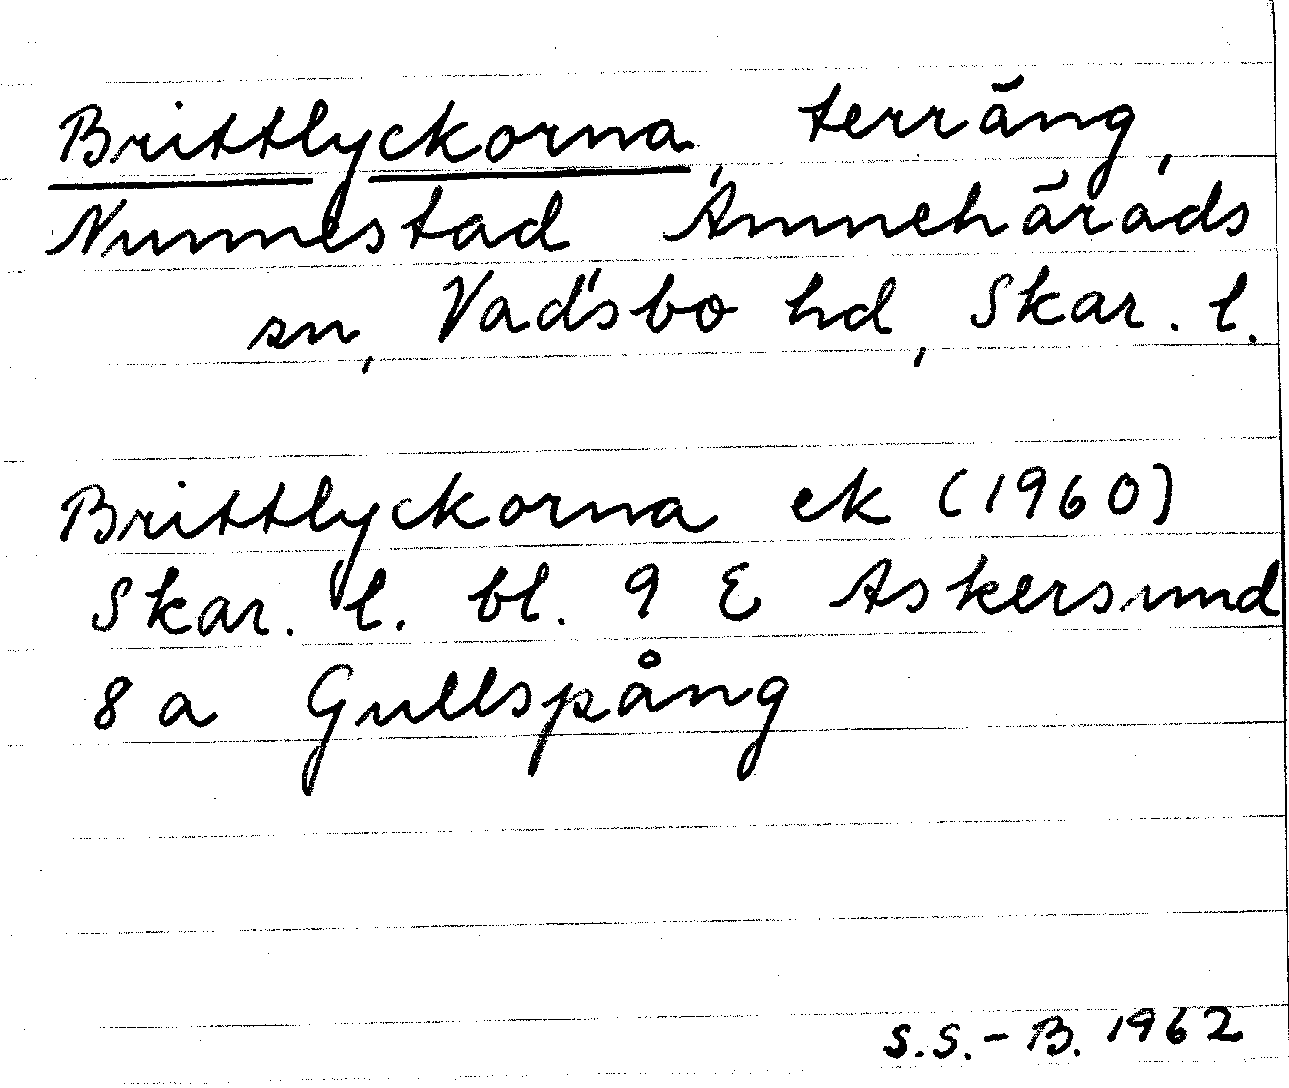 Brittlyckorna, terräng,
Nunnestad Amnehärads
sn, Vadsbo hd, Skar. l.
Brittlyckorna ek (1960)
Skar. l. bl. 9 E Askersund
8 a Gullspång
S.S.-B. 1962